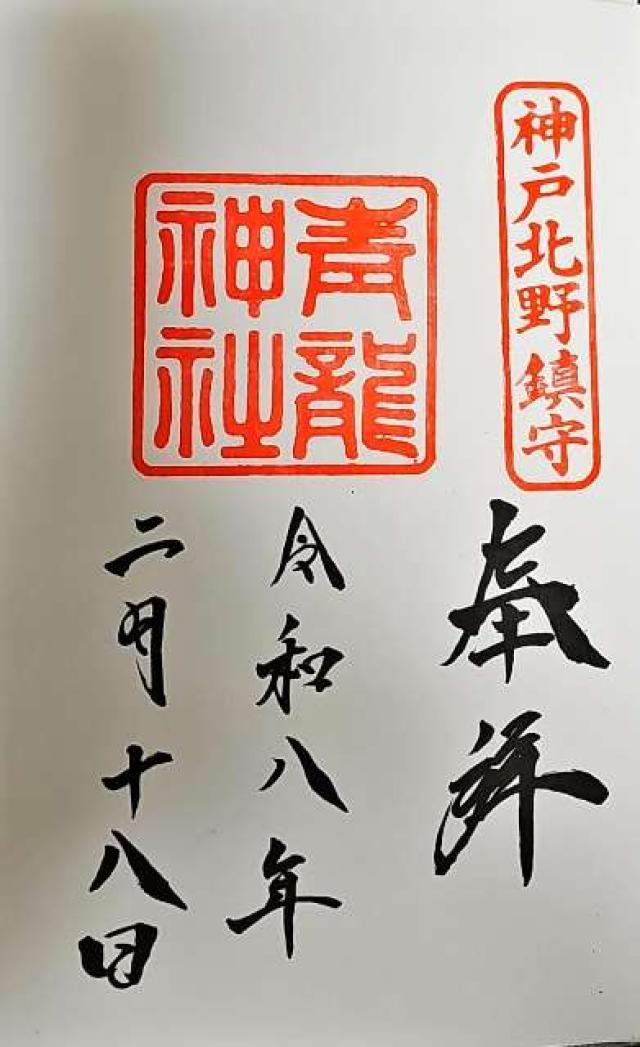 神戸北野鎮守
奉拝
青龍
神社
令和八年
二月十八日